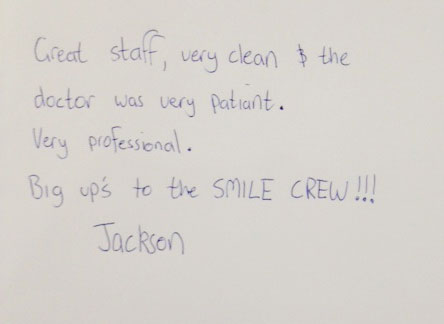 Great staff, very clean & the
doctor was very patiant.
Very professional.
Big up's to the SMILE CREW!!!
Jackson